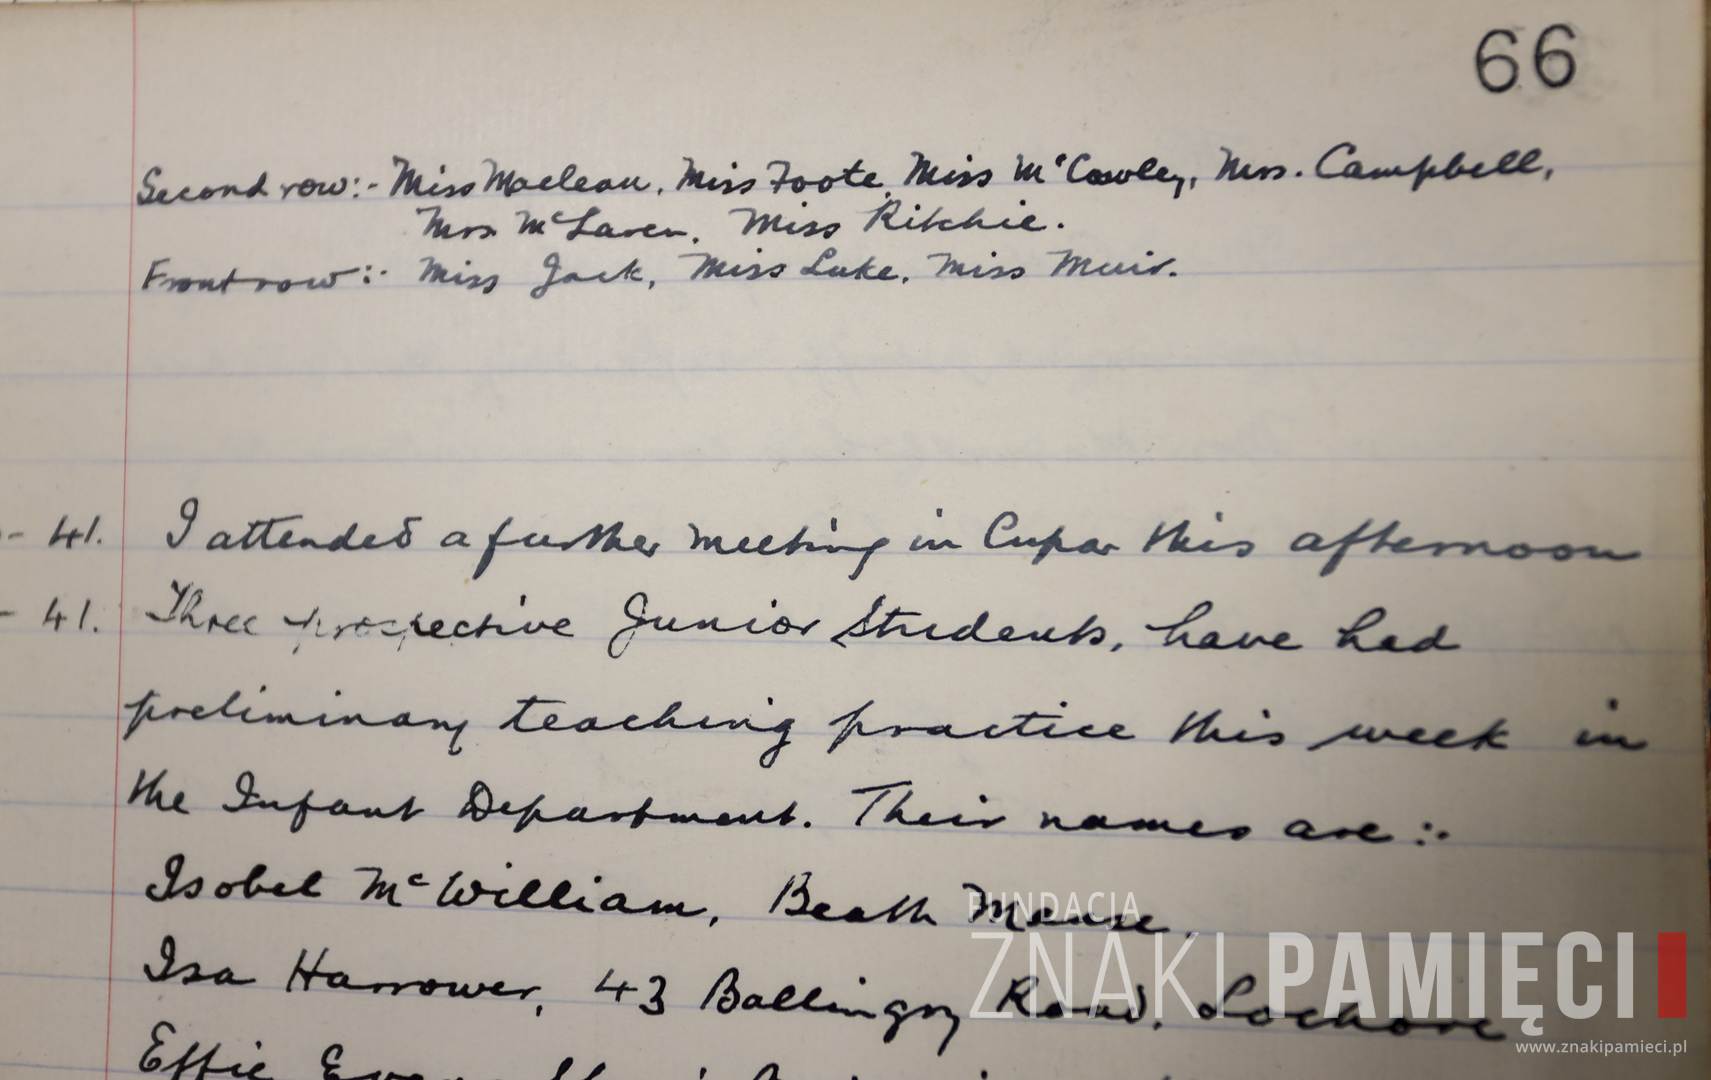 66
Second row:- Miss Maclean, Miss Foote, Miss McCowley, Mrs. Campbell,
Mrs McLaren, Miss Ritchie.
Front row:- Miss Jack, Miss Luke, Miss Muir.
- 41. I attended a further meeting in Cupar this afternoon
- 41. Three prospective Junior Students, have had
preliminary teaching practice this week in
the Infant Department. Their names are:-
Isobel McWilliam, Beath Manse,
Isa Harrower, 43 Ballingry Road, Lochore
Effie
FUNDACJA
ZNAKI PAMIĘCI
www.znakipamieci.pl